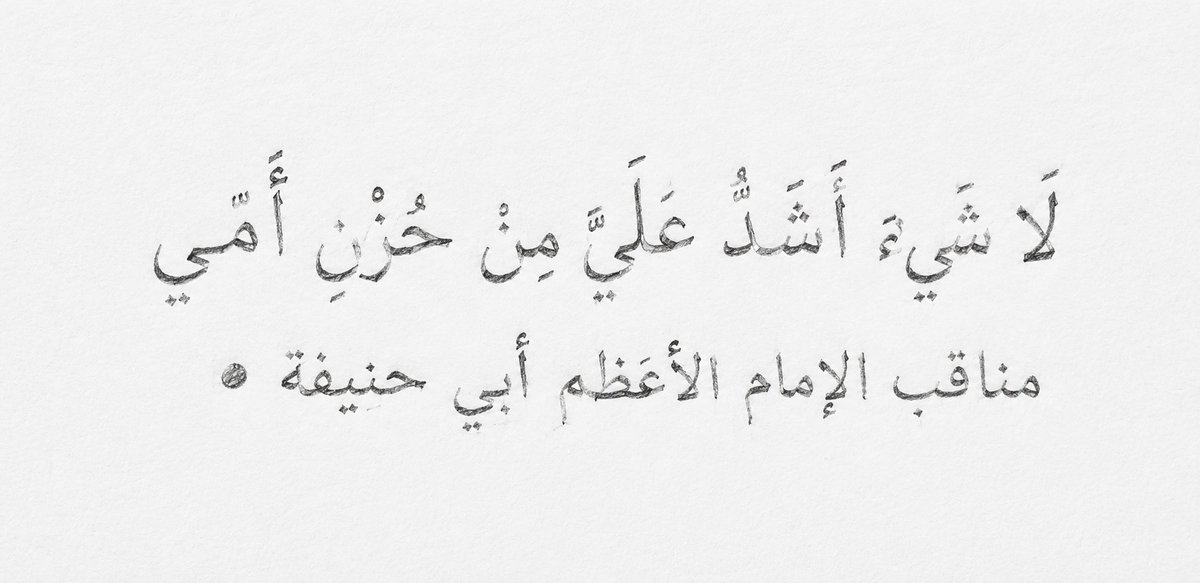 لَا شَيءَ أَشَدُّ عَلَيَّ مِنْ حُزْنِ أَمّي
مناقب الإمام الأعَظم أبي حنِيفة •